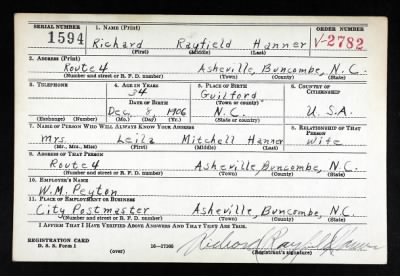 SERIAL NUMBER 1. NAME (Print) ORDER NUMBER
1594 Richard Rayfield Hanner V-2782
(First) (Middle) (Last)
2. ADDRESS (Print)
Route 4 Asheville, Buncombe, N.C.
(Number and street or R. F. D. number) (Town) (County) (State)
3. TELEPHONE 4. AGE IN YEARS 5. PLACE OF BIRTH 6. COUNTRY OF CITIZENSHIP
34 Guilford
DATE OF BIRTH (Town or county)
Dec. 8 1906 N.C. U.S.A.
(Exchange) (Number) (Mo.) (Day) (Yr.) (State or country)
7. NAME OF PERSON WHO WILL ALWAYS KNOW YOUR ADDRESS 8. RELATIONSHIP OF THAT PERSON
Mrs. Leila Mitchell Hanner Wife
(Mr., Mrs., Miss) (First) (Middle) (Last)
9. ADDRESS OF THAT PERSON
Route 4 Asheville, Buncombe, N.C.
(Number and street or R. F. D. number) (Town) (County) (State)
10. EMPLOYER'S NAME
W.M. Peyton
11. PLACE OF EMPLOYMENT OR BUSINESS
City Postmaster Asheville, Buncombe, N.C.
(Number and street or R. F. D. number) (Town) (County) (State)
I AFFIRM THAT I HAVE VERIFIED ABOVE ANSWERS AND THAT THEY ARE TRUE.
REGISTRATION CARD
D. S. S. Form 1 (over) 16—17105 Richard Rayfield Hanner
(Registrant's signature)